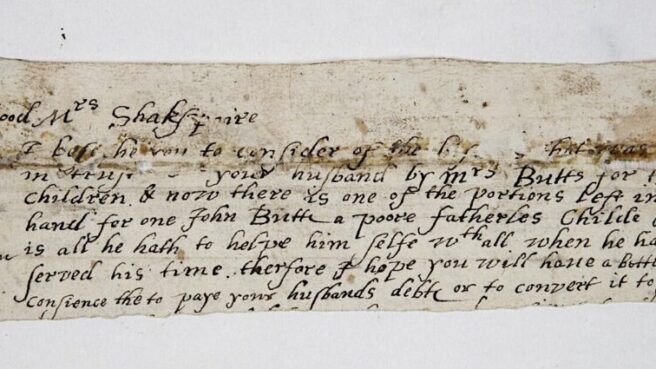 ood Mrs Shakspaire
I beseche you to consider of the that was
in trust your husband by mrs Butts for
Children & now there is one of the portions left in
hand for one John Butte a poore fatherles Childe
is all he hath to helpe him selfe wth all when he ha
served his time. therfore I hope you will have a bette
Consience the to paye your husbands debte or to convert it to